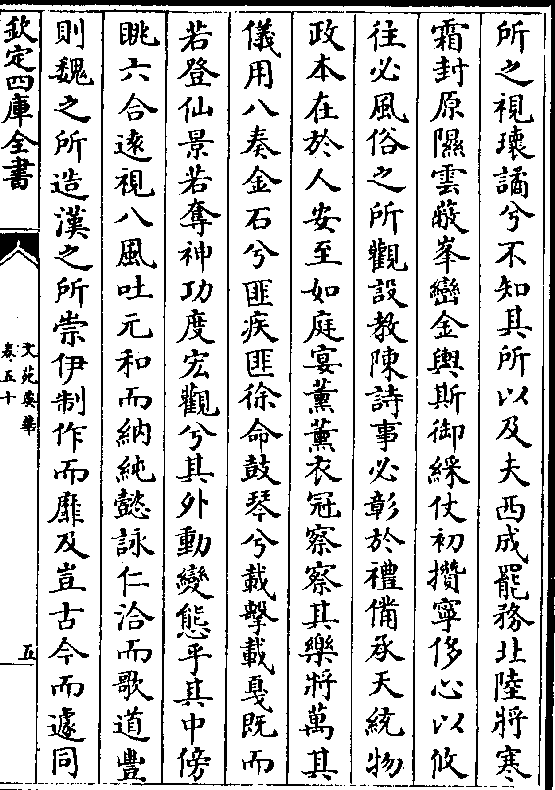 所之視瓌譎兮不知其所以及夫西成罷務北陸將寒
霜封原隰雲蔽峯巒金輿斯御綵仗初攢寧侈心以攸
往必風俗之所觀設教陳詩事必彰於禮備承天統物
政本在於人安至如庭宴薰薰衣冠察察其樂將萬其
儀用八奏金石兮匪疾匪徐命鼓琴兮載擊載戛既而
若登仙景若奪神功度宏觀兮其外動變態乎其中傍
眺六合逺視八風吐元和而納純懿詠仁洽而歌道豐
則魏之所造漢之所崇伊制作而靡及豈古今而遽同
欽定四庫全書
文苑英華
卷五十
五